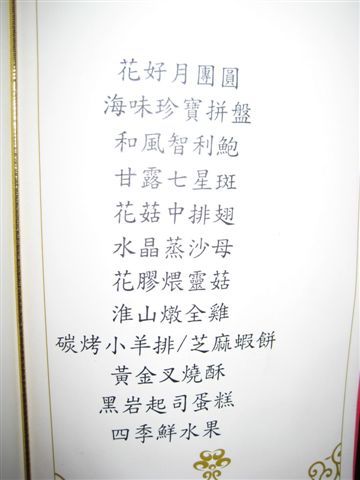 花好月團圓
海味珍寶拼盤
和風智利鮑
甘露七星斑
花菇中排翅
水晶蒸沙母
花膠煨靈菇
淮山燉全雞
碳烤小羊排/芝麻蝦餅
黃金叉燒酥
黑岩起司蛋糕
四季鮮水果